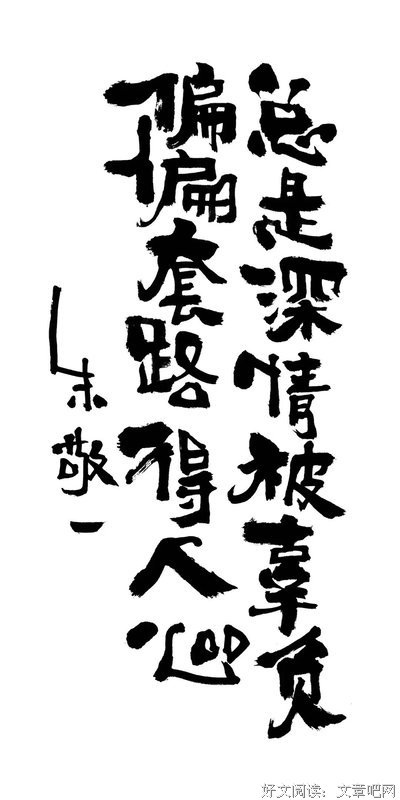 总是深情被辜负
偏偏套路得人心
朱敬一
好文阅读：文章吧网